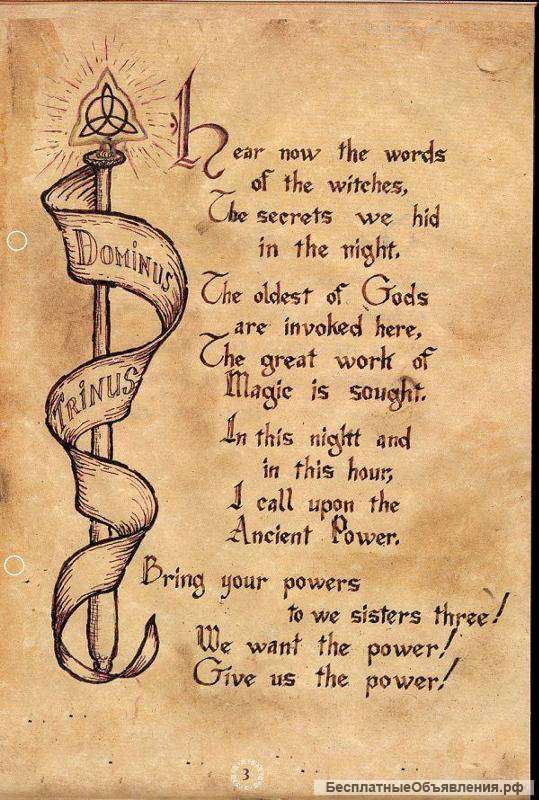 Hear now the words
of the witches,
The secrets we hid
in the night.
The oldest of Gods
are invoked here,
The great work of
Magic is sought.
In this nightt and
in this hour,
I call upon the
Ancient Power.
Bring your powers
to we sisters three!
We want the power!
Give us the power!
DOMINUS
TRINUS
3
БесплатныеОбъявления.рф